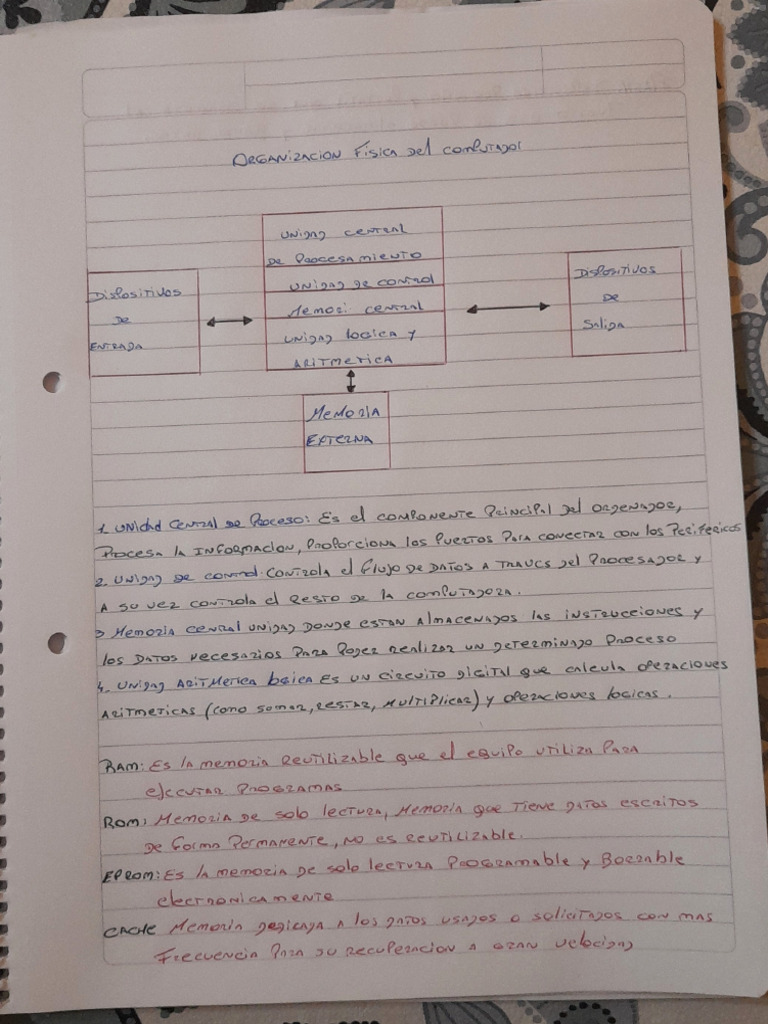 ORGANIZACION FISICA DEL COMPUTADOR
UNIDAD CENTRAL
DE PROCESAMIENTO
UNIDAD DE CONTROL
MEMORI CENTRAL
UNIDAD LOGICA Y
ARITMETICA
DISPOSITIVOS
DE
ENTRADA
DISPOSITIVOS
DE
SALIDA
MEMORIA
EXTERNA
1. UNIDAD CENTRAL DE PROCESO: ES EL COMPONENTE PRINCIPAL DEL ORDENADOR,
PROCESA LA INFORMACION, PROPORCIONA LOS PUERTOS PARA CONECTAR CON LOS PERIFERICOS
2. UNIDAD DE CONTROL. CONTROLA EL FLUJO DE DATOS A TRAVES DEL PROCESADOR Y
A SU VEZ CONTROLA EL RESTO DE LA COMPUTADORA.
3 MEMORIA CENTRAL UNIDAD DONDE ESTAN ALMACENADOS LAS INSTRUCCIONES Y
LOS DATOS NECESARIOS PARA PODER REALIZAR UN DETERMINADO PROCESO
4. UNIDAD ARITMETICA LOGICA ES UN CIRCUITO DIGITAL QUE CALCULA OPERACIONES
ARITMETICAS (COMO SUMAR, RESTAR, MULTIPLICAR) Y OPERACIONES LOGICAS.
RAM: ES LA MEMORIA REUTILIZABLE QUE EL EQUIPO UTILIZA PARA
EJECUTAR PROGRAMAS
ROM: MEMORIA DE SOLO LECTURA, MEMORIA QUE TIENE DATOS ESCRITOS
DE FORMA PERMANENTE, NO ES REUTILIZABLE.
EPROM: ES LA MEMORIA DE SOLO LECTURA PROGRAMABLE Y BORRABLE
ELECTRONICAMENTE
CACHE MEMORIA DEDICADA A LOS DATOS USADOS O SOLICITADOS CON MAS
FRECUENCIA PARA SU RECUPERACION A GRAN VELOCIDAD